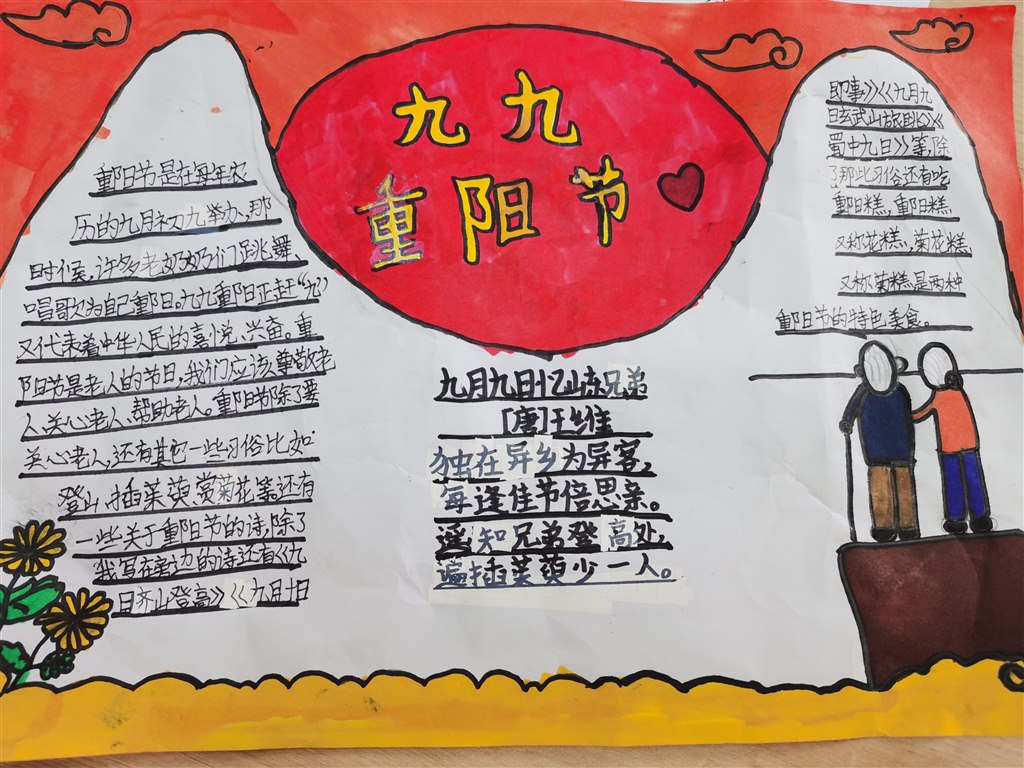 九九
重阳节
重阳节是在每年农
历的九月初九举办,那
时候,许多老奶奶们跳舞、
唱歌为自己重阳。九九重阳正赶“九”
又代表着中华人民的喜悦、兴奋。重
阳节是老人的节日,我们应该尊敬老
人、关心老人、帮助老人。重阳节除了要
关心老人,还有其它一些习俗比如:
登山、插茱萸、赏菊花等,还有
一些关于重阳节的诗,除了
我写在旁边的诗还有《九
日齐山登高》《九月十日
即事》《九月九
日玄武山旅眺》《
蜀中九日》等,除
了那些习俗还有吃
重阳糕,重阳糕,
又称花糕,菊花糕,
又称菊糕,是两种
重阳节的特色美食。
九月九日忆山东兄弟
[唐]王维
独在异乡为异客,
每逢佳节倍思亲。
遥知兄弟登高处,
遍插茱萸少一人。